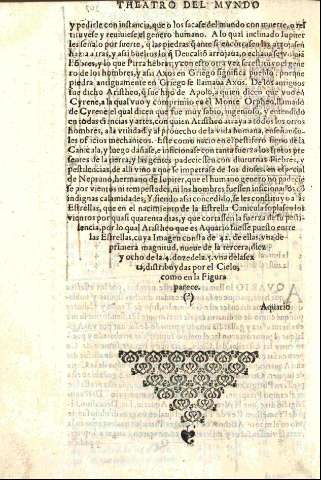 THEATRO DEL MVNDO
y pedirle con instancia, que o los sacase del mundo con muerte, o restituyese y reuuiese el genero humano. A lo qual inclinado Iupiter
les señalo por suerte, que las piedras
atras, y assi hizieron lo q̃ Deucalion arrojaua, o echaua se
hõbres, y lo que Pirra hẽbras; y con esto otra vez se restituyo el genero
ro de los hombres, y assi Axos en Griego significa pueblo, porque
piedra antiguamente en Griego se llamaua Axos. De los antiguos
fue dicho Aristheo, q̃ fue hijo de Apolo, a quien dicen que vuo en
Cyrene, a la qual vuo y comprimio en el Monte Orpheo, llamado
de Cyrene el qual dicen que fue muy sabio, ingenioso, y entendido
en todas ciencias y artes, con quien Aristheo atrayo a todos los otros
hombres, a la vtilidad y al prouecho de la vida humana, enseñandoles
officios mecanicos. Este como vuo en el pestifero signo de la
Canicula, y luego dañase, e inficionase con tanta fuerça los frutos presentes
de la tierra, y las gentes padeciessen con diuturnas Fiebres, y
pestilencias, de alli vino a que se imperase de los dioses, en especial
de Neptuno, hermano de Iupiter, que el humano genero no pereciese
por vientos ni tempestades, ni los hombres fuessen inficionados
indignas calamidades, Y siendo assi concedido, se les constituyo a
Estrellas, que en el nacimiento de la Estrella Canicula soplasen los
vientos por quasi quarenta dias, y que cortassen la fuerça de la pestilencia,
por lo qual Aristheo que es Aquario fuesse puesto entre
las Estrellas, cuya Imagen consta de 42. de ellas, vna de
primera magnitud, nueue de la tercera, diez
y ocho de la 4. doze de la 5. vna de la sexta,
distribuydas por el Cielo,
como en la Figura
parece.
(?)
Aquario